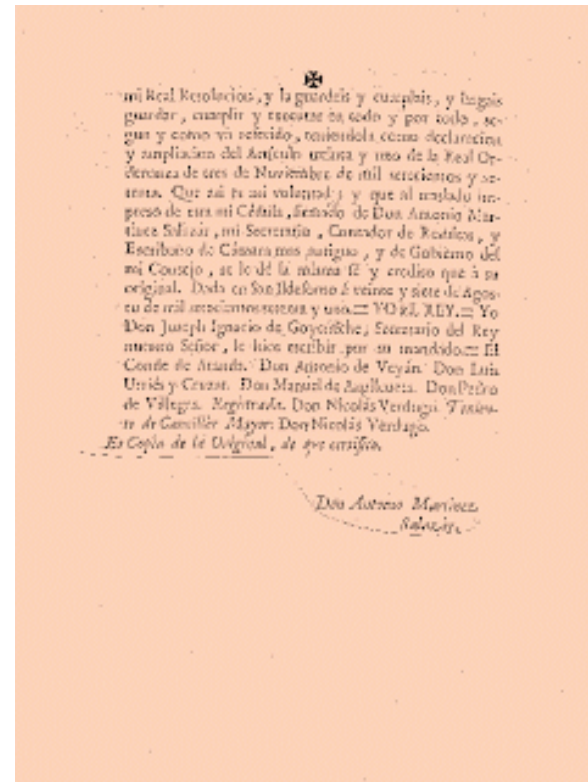 ✠
mi Real Resolucion, y la guardeis y cumplais, y hagais
guardar, cumplir y executar en todo y por todo, se-
gun y como vá referido, teniendola como declaracion
y ampliacion del Articulo treinta y uno de la Real Or-
denanza de tres de Noviembre de mil setecientos y se-
tenta. Que asi es mi voluntad; y que al traslado im-
preso de esta mi Cédula, firmado de Don Antonio Mar-
tinez Salazár, mi Secretario, Contador de Resultas, y
Escribano de Cámara mas antiguo, y de Gobierno del
mi Consejo, se le dé la misma fé y credito que á su
original. Dada en San Ildefonso á veinte y siete de Agos-
to de mil setecientos setenta y uno.= YO EL REY.= Yo
Don Joseph Ignacio de Goyeneche, Secretario del Rey
nuestro Señor, le hice escribir por su mandado.= El
Conde de Aranda. Don Antonio de Veyán. Don Luis
Urriés y Cruzat. Don Manuel de Azpilcueta. Don Pedro
de Villegas. Registrada. Don Nicolás Verdugo. Tenien-
te de Canciller Mayor: Don Nicolás Verdugo.
Es Copia de la Original, de que certifico.
Don Antonio Martinez
Salazár.